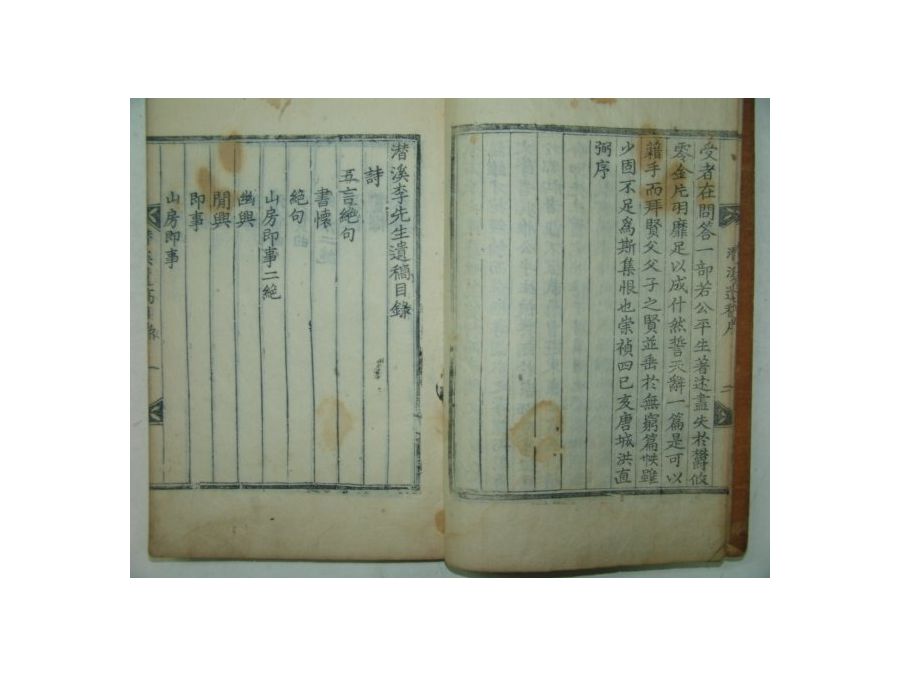 受者在問答一部若公平生著述盡失於欝攸
零金片明靡足以成什然誓天辭一篇是可以
藉手而拜賢父父子之賢並垂於無窮篇帙雖
少固不足爲斯集恨也崇禎四已亥唐城洪直
弼序
潜溪遺稿序
二
潜溪李先生遺稿目錄
詩
五言絶句
書懷
絶句
山房即事二絶
幽興
閒興
即事
山房即事
一